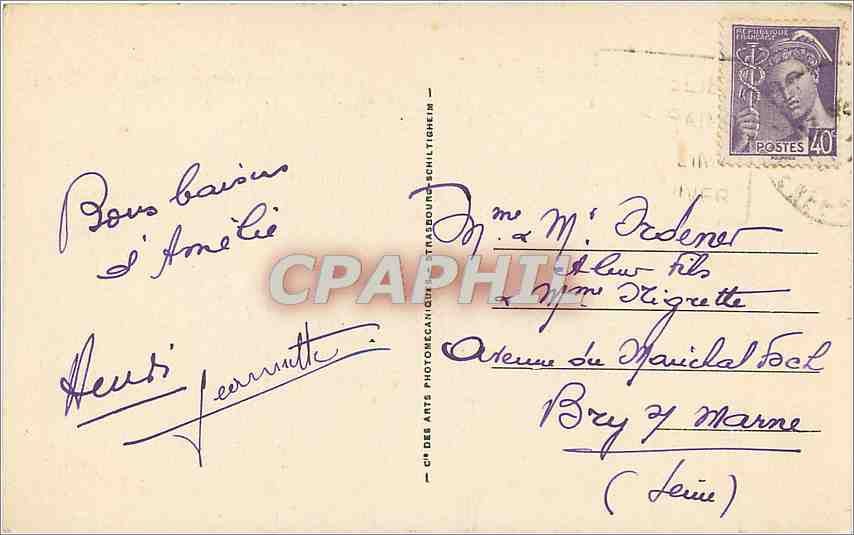 Bons baisers
d'Amélie
Henri
Jeannette
Cie DES ARTS PHOTOMECANIQUES - STRASBOURG-SCHILTIGHEIM
RÉPUBLIQUE
FRANÇAISE
POSTES 40c
INVER
Mme & Mr Ardener
& leur fils
& Mme Nigrette
Avenue du Maréchal Foch
Bry s/ Marne
(Seine)
CPAPHIL